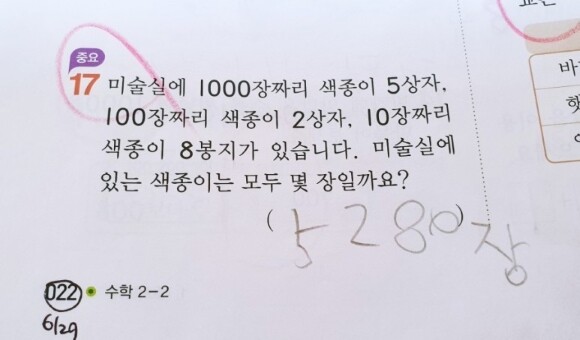 중요
17 미술실에 1000장짜리 색종이 5상자,
100장짜리 색종이 2상자, 10장짜리
색종이 8봉지가 있습니다. 미술실에
있는 색종이는 모두 몇 장일까요?
( 5280 ) 장
022 수학 2-2
6/29